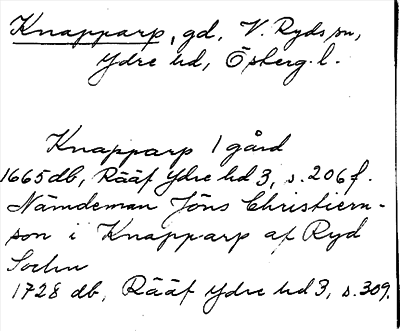 Knapparp, gd, V. Ryds sn,
Ydre hd, Ösberg. l.
Knapparp 1 gård
1665 db, Rääf Ydre hd 3, s. 206 f.
Nämdeman Jöns Christiern-
son i Knapparp af Ryd
Sochn
1728 db, Rääf Ydre hd 3, s. 309.